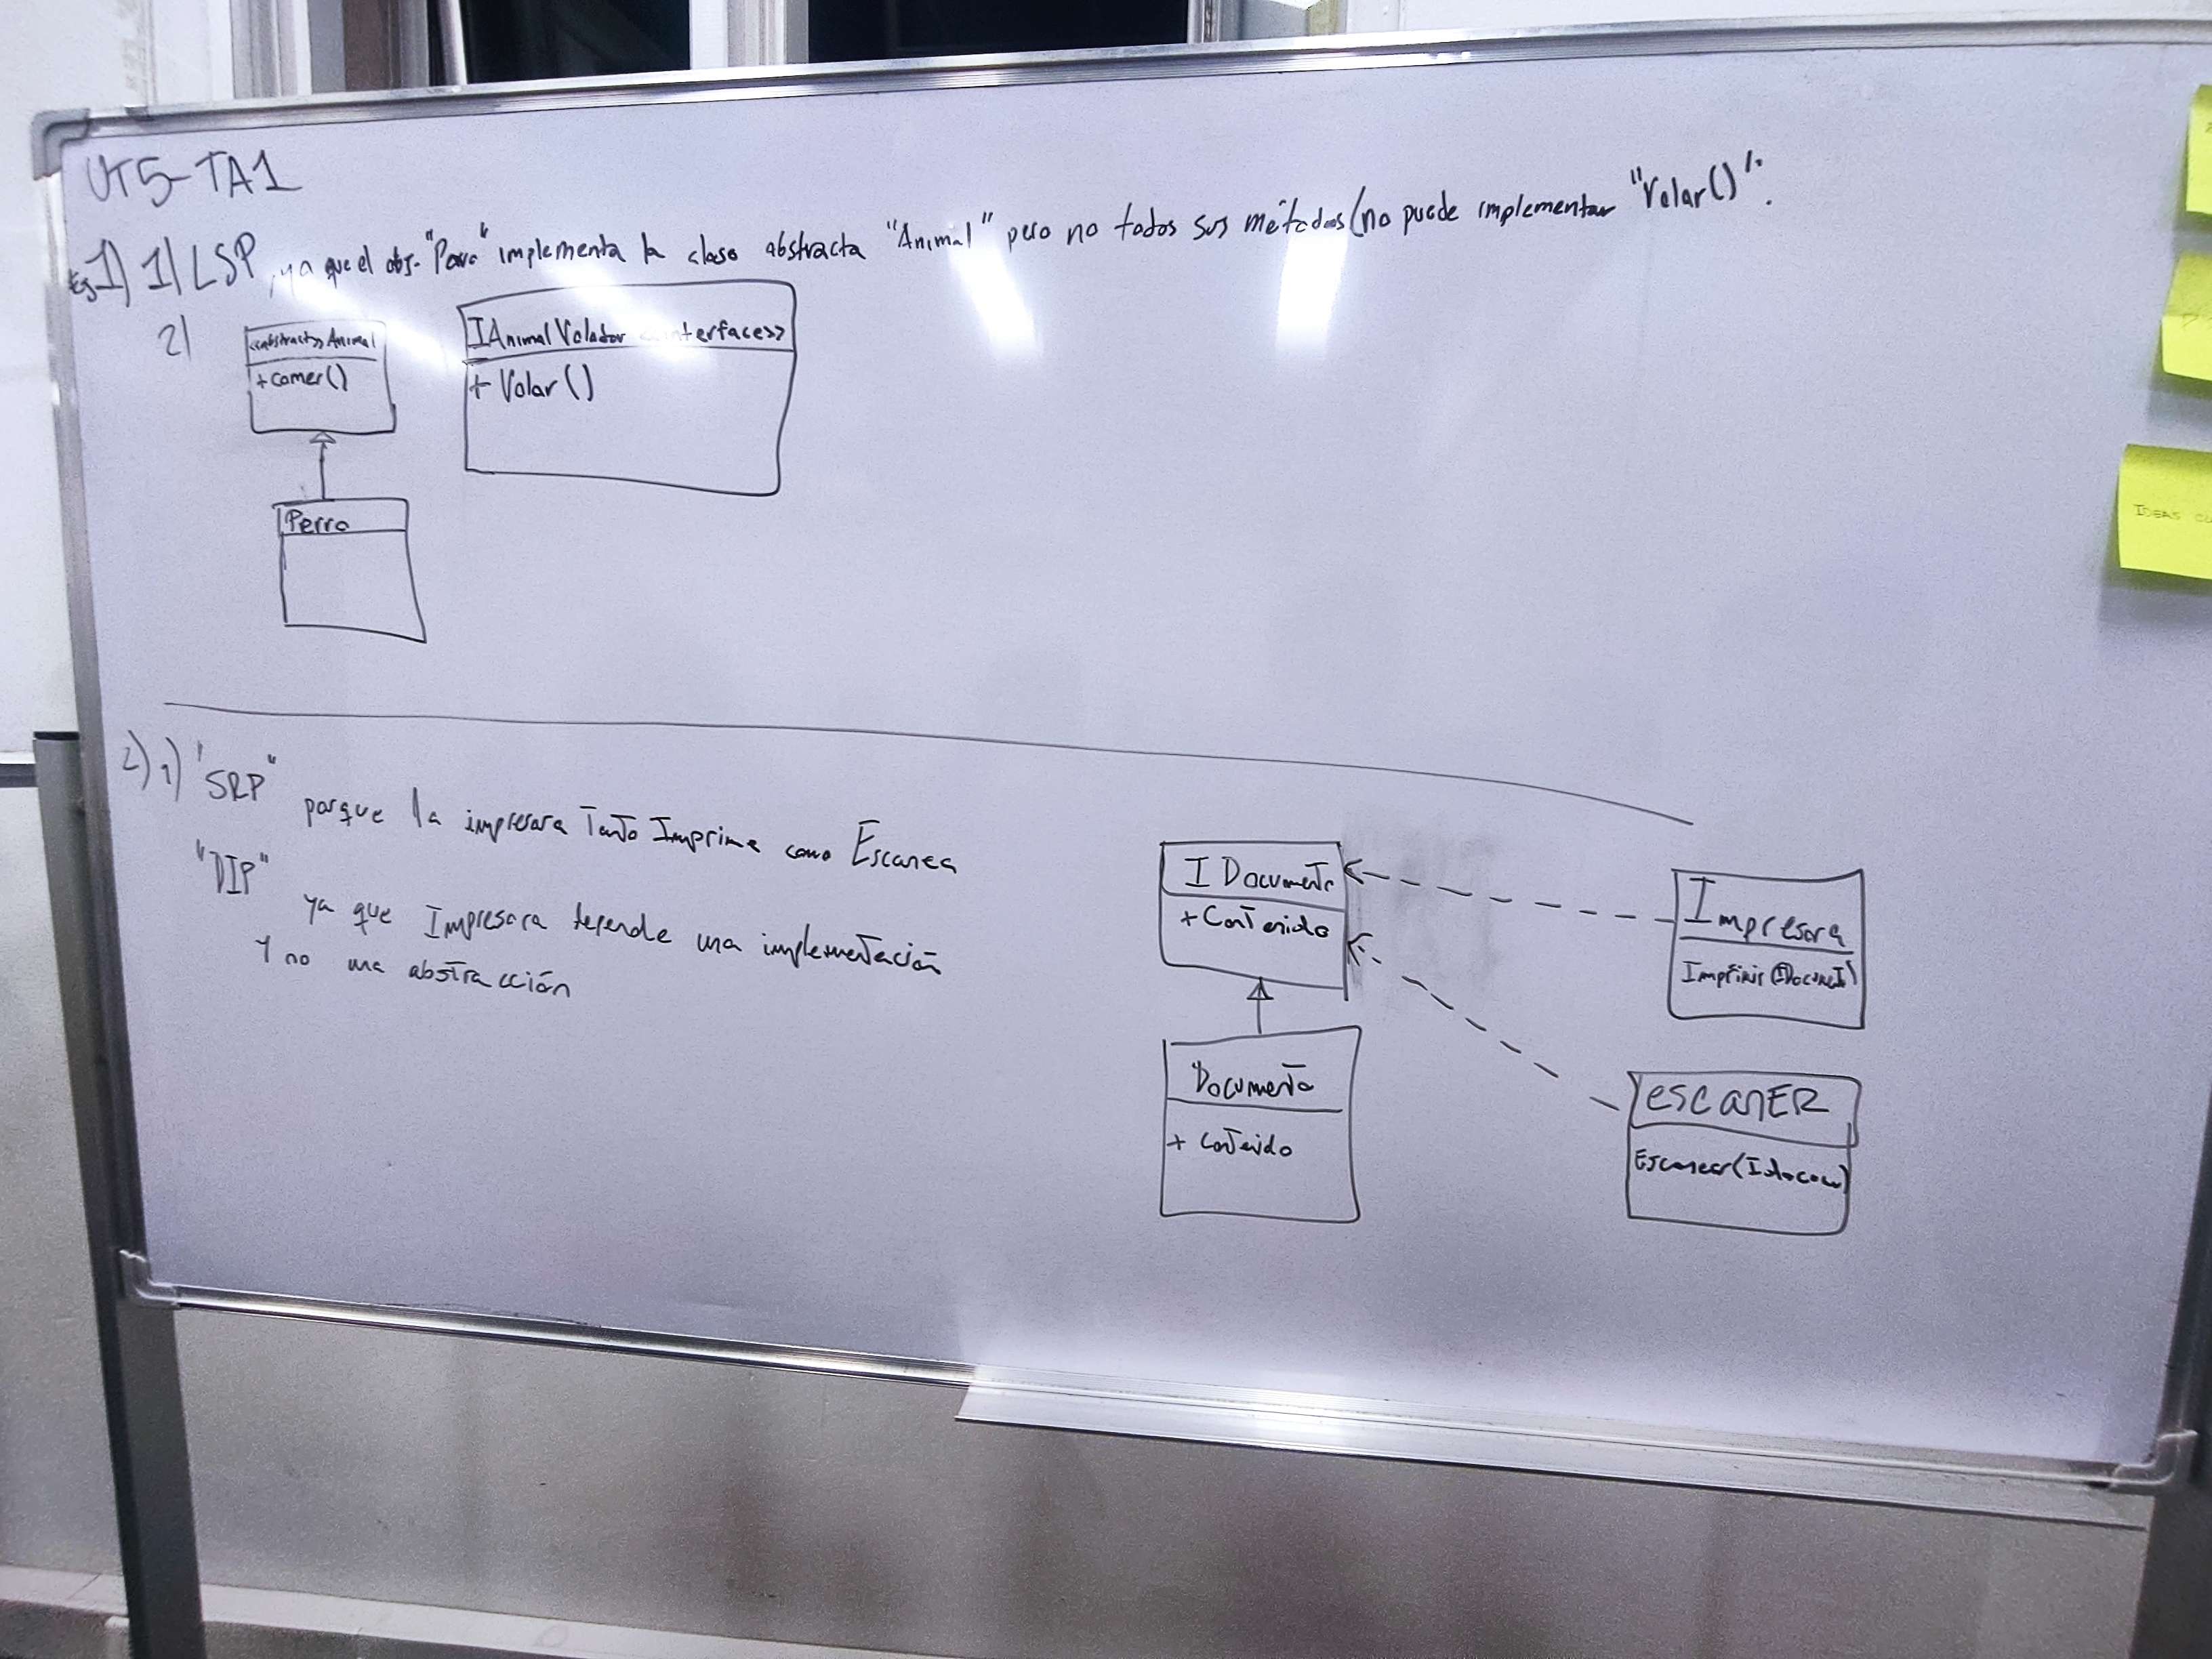 UT5-TA1
Ej 1) 1) LSP, ya que el obj. "Perro" implementa la clase abstracta "Animal" pero no todos sus métodos (no puede implementar "Volar()".
2)
<<abstract>> Animal
+ comer()
Perro
IAnimalVolador <<interface>>
+ Volar()
2) 1) "SRP" porque la impresora Tanto Imprime como Escanea
"DIP" ya que Impresora depende una implementación
Y no una abstracción
I Documento
+ Contenido
Documento
+ Contenido
Impresora
Imprimir (IDocument)
escanER
Escanear (Idocum)
IDEAS